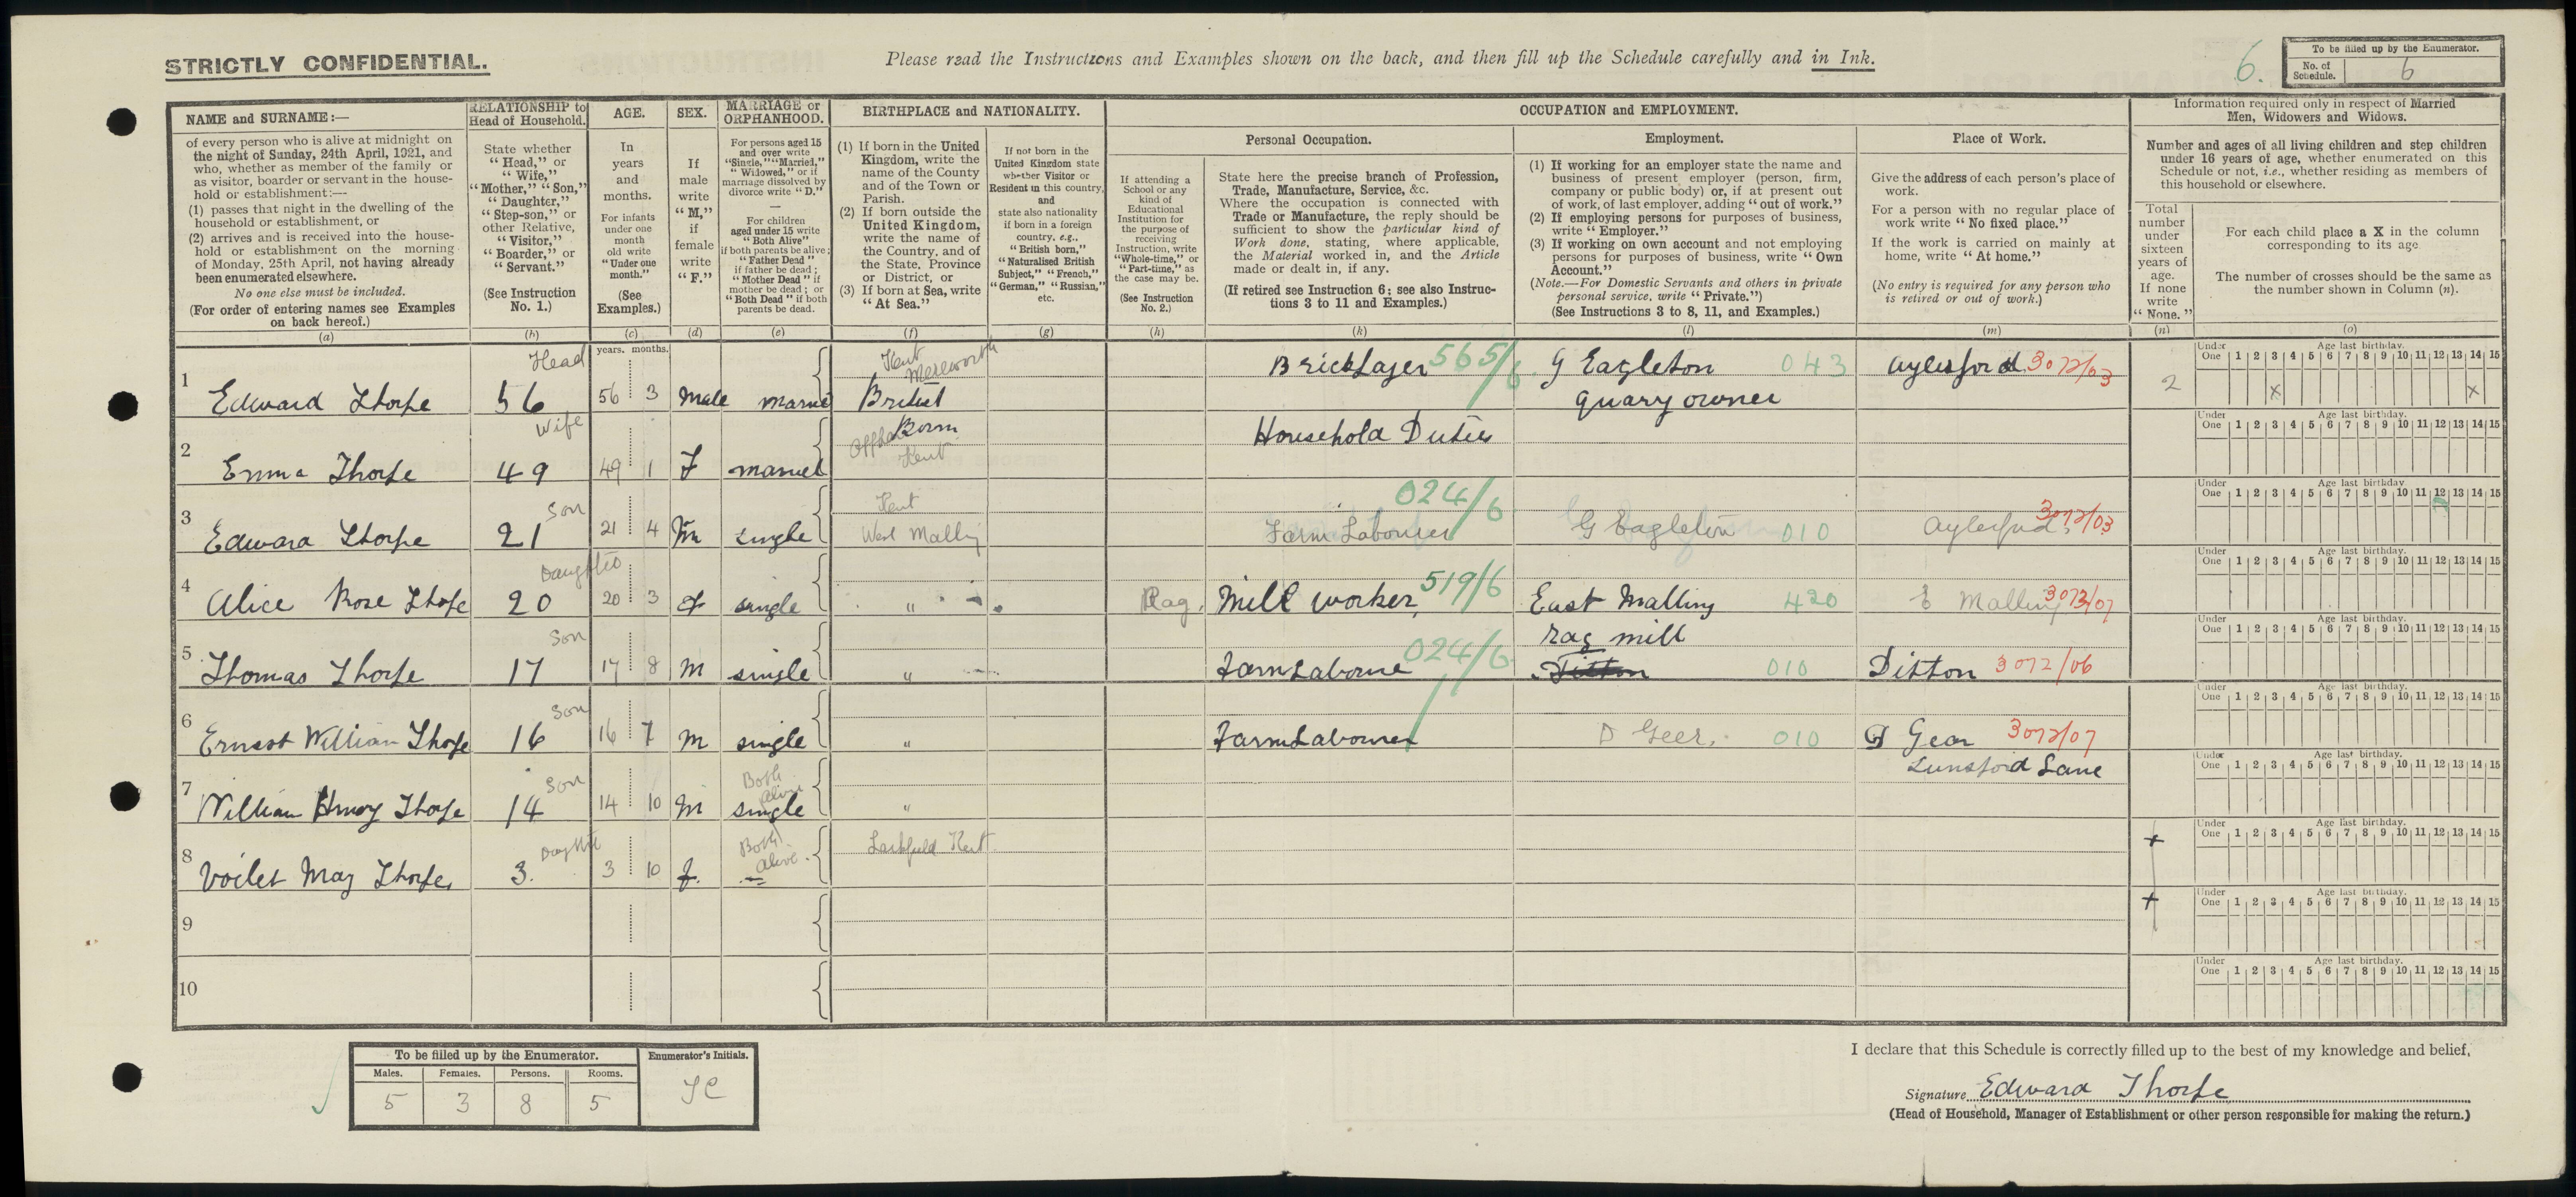 STRICTLY CONFIDENTIAL.
Please read the Instructions and Examples shown on the back, and then fill up the Schedule carefully and in Ink.
6.
To be filled up by the Enumerator.
No. of Schedule. 6
NAME and SURNAME:—
of every person who is alive at midnight on
the night of Sunday, 24th April, 1921, and
who, whether as member of the family or
as visitor, boarder or servant in the house-
hold or establishment:—
(1) passes that night in the dwelling of the
household or establishment, or
(2) arrives and is received into the house-
hold or establishment on the morning
of Monday, 25th April, not having already
been enumerated elsewhere.
No one else must be included.
(For order of entering names see Examples
on back hereof.)
(a)
RELATIONSHIP to
Head of Household.
State whether
"Head," or
"Wife,"
"Mother," "Son,"
"Daughter,"
"Step-son," or
other Relative,
"Visitor,"
"Boarder," or
"Servant."
(See Instruction
No. 1.)
(b)
AGE.
In
years
and
months.
For infants
under one
month
old write
"Under one
month."
(See
Examples.)
(c)
SEX.
If
male
write
"M,"
if
female
write
"F."
(d)
MARRIAGE or
ORPHANHOOD.
For persons aged 15
and over write
"Single," "Married,"
"Widowed," or if
marriage dissolved by
divorce write "D."
—
For children
aged under 15 write
"Both Alive"
if both parents be alive;
"Father Dead"
if father be dead;
"Mother Dead" if
mother be dead; or
"Both Dead" if both
parents be dead.
(e)
BIRTHPLACE and NATIONALITY.
(1) If born in the United
Kingdom, write the
name of the County
and of the Town or
Parish.
(2) If born outside the
United Kingdom,
write the name of
the Country, and of
the State, Province
or District, or
(3) If born at Sea, write
"At Sea."
(f)
If not born in the
United Kingdom state
whether Visitor or
Resident in this country,
and
state also nationality
if born in a foreign
country, e.g.,
"British born,"
"Naturalised British
Subject," "French,"
"German," "Russian,"
etc.
(g)
OCCUPATION and EMPLOYMENT.
Personal Occupation.
If attending a
School or any
kind of
Educational
Institution for
the purpose of
receiving
Instruction, write
"Whole-time," or
"Part-time," as
the case may be.
(See Instruction
No. 2.)
(h)
State here the precise branch of Profession,
Trade, Manufacture, Service, &c.
Where the occupation is connected with
Trade or Manufacture, the reply should be
sufficient to show the particular kind of
Work done, stating, where applicable,
the Material worked in, and the Article
made or dealt in, if any.
(If retired see Instruction 6; see also Instruc-
tions 3 to 11 and Examples.)
(k)
Employment.
(1) If working for an employer state the name and
business of present employer (person, firm,
company or public body) or, if at present out
of work, of last employer, adding "out of work."
(2) If employing persons for purposes of business,
write "Employer."
(3) If working on own account and not employing
persons for purposes of business, write "Own
Account."
(Note.—For Domestic Servants and others in private
personal service, write "Private.")
(See Instructions 3 to 8, 11, and Examples.)
(l)
Place of Work.
Give the address of each person's place of
work.
For a person with no regular place of
work write "No fixed place."
If the work is carried on mainly at
home, write "At home."
(No entry is required for any person who
is retired or out of work.)
(m)
Information required only in respect of Married
Men, Widowers and Widows.
Number and ages of all living children and step children
under 16 years of age, whether enumerated on this
Schedule or not, i.e., whether residing as members of
this household or elsewhere.
Total
number
under
sixteen
years of
age.
If none
write
"None."
(n)
For each child place a X in the column
corresponding to its age
The number of crosses should be the same as
the number shown in Column (n).
(o)
years. months.
Under One Age last birthday. 1 2 3 4 5 6 7 8 9 10 11 12 13 14 15
1 Edward Thorpe Head 56 56 3 Male Married Kent Mereworth British Bricklayer 565/6 G Eagleton 043 Quary owner Aylesford 3072/03 2 x x
Under One Age last birthday. 1 2 3 4 5 6 7 8 9 10 11 12 13 14 15
2 Emma Thorpe Wife 49 49 1 F married Offham Born Kent Household Duties
Under One Age last birthday 1 2 3 4 5 6 7 8 9 10 11 12 13 14 15
3 Edward Thorpe Son 21 21 4 M single Kent West Malling Farm Labourer 024/6 G Eagleton 010 Aylesford 3072/03
Under One Age last birthday. 1 2 3 4 5 6 7 8 9 10 11 12 13 14 15
4 Alice Rose Thorpe Daughter 20 20 3 F single " Rag Mill worker, 519/6 East Malling 420 rag mill E Malling 3073/07
Under One Age last birthday. 1 2 3 4 5 6 7 8 9 10 11 12 13 14 15
5 Thomas Thorpe Son 17 17 8 M single " Farm Laboure 024/6 Ditton 010 Ditton 3072/06
Under One Age last birthday. 1 2 3 4 5 6 7 8 9 10 11 12 13 14 15
6 Ernest William Thorpe Son 16 16 7 M single " Farm Labourer D Geer, 010 D Gear 3072/07 Lunsford Lane
Under One Age last birthday. 1 2 3 4 5 6 7 8 9 10 11 12 13 14 15
7 William Henry Thorpe Son 14 14 10 M single Both alive "
Under One Age last birthday. 1 2 3 4 5 6 7 8 9 10 11 12 13 14 15
8 Voilet May Thorpe Daughter 3. 3 10 f. Both alive. Larkfield Kent +
Under One Age last birthday. 1 2 3 4 5 6 7 8 9 10 11 12 13 14 15
9 +
Under One Age last birthday. 1 2 3 4 5 6 7 8 9 10 11 12 13 14 15
10
To be filled up by the Enumerator.
Males. Females. Persons. Rooms.
5 3 8 5
Enumerator's Initials.
I declare that this Schedule is correctly filled up to the best of my knowledge and belief,
Signature Edward Thorpe
(Head of Household, Manager of Establishment or other person responsible for making the return.)